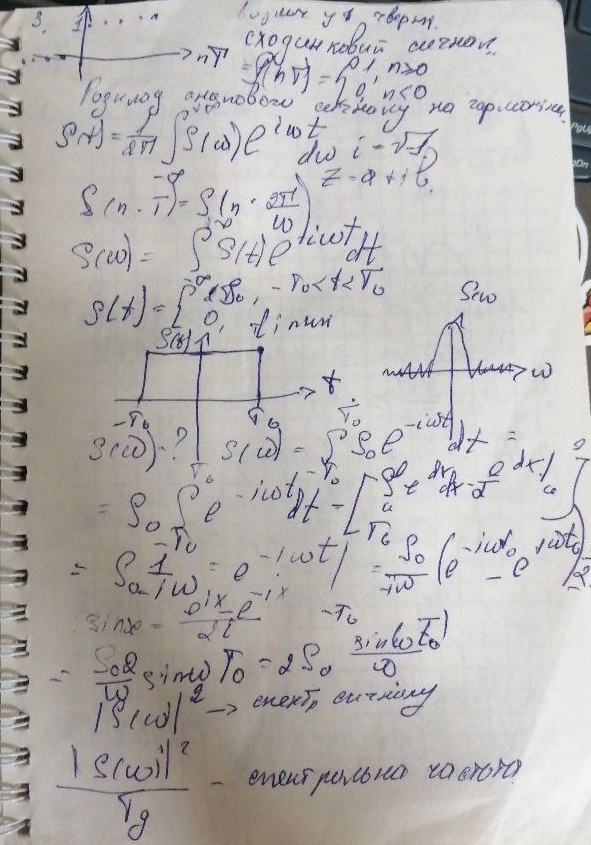 3. 1
сходинковий сигнал.
nT = S(nT) = { 1, n≥0
0, n<0
Розклад сигналу на гармоніки
S(t) = 1/2π ∫ S(ω) e^{iωt} dω i = √-1
-∞
z = a + i b.
S(n·T) = S(n · 2π/ω)
S(ω) = ∫ S(t) e^{-iωt} dt
-∞
S(t) = { S₀, -T₀<t<T₀
0,
S(t) S(ω)
t ω
-T₀ T₀
S(ω) - ? S(ω) = ∫_{-T₀}^{T₀} S₀ e^{-iωt} dt =
= S₀ ∫_{-T₀}^{T₀} e^{-iωt} dt
= S₀ 1/-iω e^{-iωt} |_{-T₀}^{T₀} = S₀/-iω (e^{-iωT₀} - e^{iωT₀})
sinx = e^{ix} - e^{-ix} / 2i
= S₀2/ω sinωT₀ = 2S₀ sin(ωT₀)/ω
|S(ω)|² → спектр сигналу
|S(ω)|²/Tg - спектрольна частота